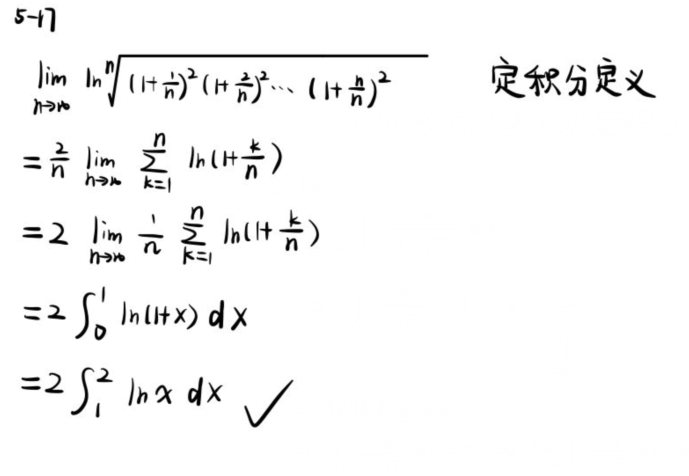 5-17
lim n→∞ ln ⁿ√((1+1/n)²(1+2/n)²⋯(1+n/n)²) 定积分定义
= 2/n lim n→∞ ∑ k=1 n ln(1+k/n)
= 2 lim n→∞ 1/n ∑ k=1 n ln(1+k/n)
= 2 ∫₀¹ ln(1+x) dx
= 2 ∫₁² ln x dx ✓